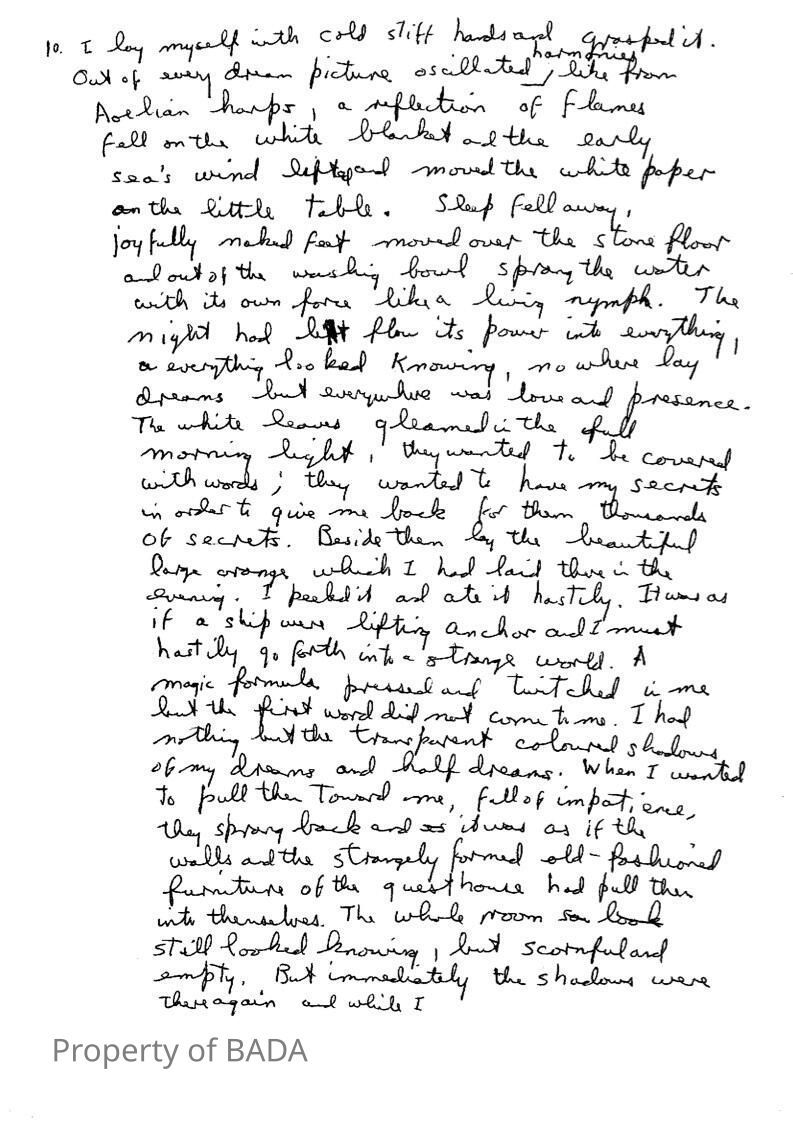 10. I lay myself with cold stiff hands and grasped it.
harmonies
Out of every dream picture oscillated, like from
Aoelian harps, a reflection of flames
fell on the white blanket ad the early
sea's wind and moved the white paper
on the little table. Sleep fell away,
joyfully naked feet moved over the stone floor
and out of the washing bowl sprang the water
with its own force like a living nymph. The
night had flow its power into everything,
everything looked knowing, nowhere lay
dreams but everywhere was love and presence.
The white leaves gleamed in the full
morning light, they wanted to be covered
with words; they wanted to have my secrets
in order to give me back for them thousands
of secrets. Beside them lay the beautiful
large orange which I had laid there in the
evening. I peeled it ad ate it hastily. It was as
if a ship were lifting anchor and I must
hastily go forth into a strange world. A
magic formula pressed and twitched in me
but the first word did not come to me. I had
nothing but the transparent coloured shadows
of my dreams and half dreams. When I wanted
to pull them toward me, full of impatience,
they sprang back and it was as if the
walls and the strangely formed old-fashioned
furniture of the guesthouse had pull them
into themselves. The whole room look
still looked knowing, but scornful and
empty. But immediately the shadows were
there again and while I
Property of BADA